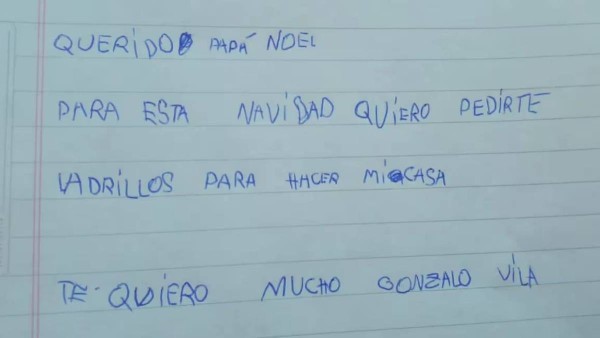 QUERIDO PAPÁ NOEL
PARA ESTA NAVIDAD QUIERO PEDIRTE
LADRILLOS PARA HACER MI CASA
TE QUIERO MUCHO GONZALO VILA